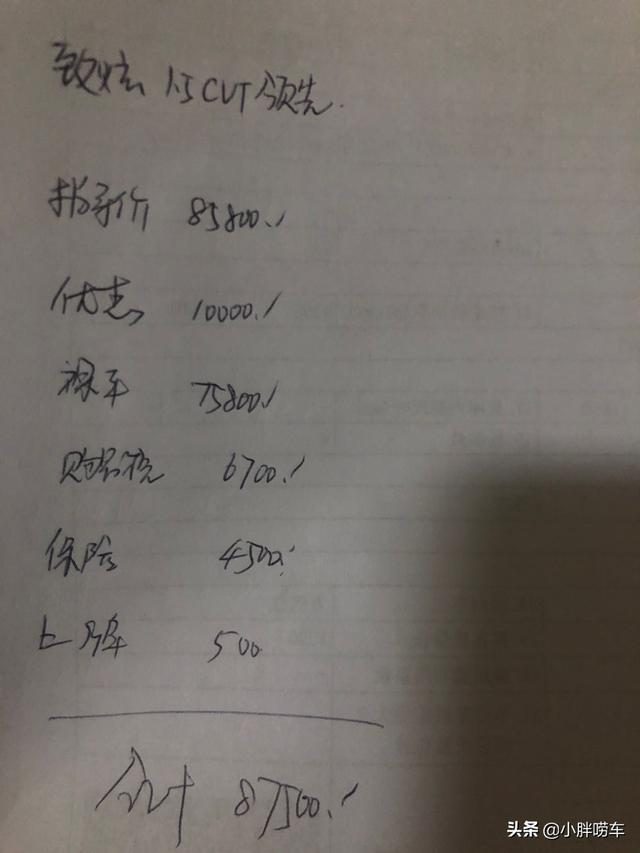 致炫 1.5CVT领先.
指导价 85800.
优惠 10000.
裸车 75800
购置税 6700.
保险 4500.
上牌 500
合计 87500.
头条 @小胖唠车